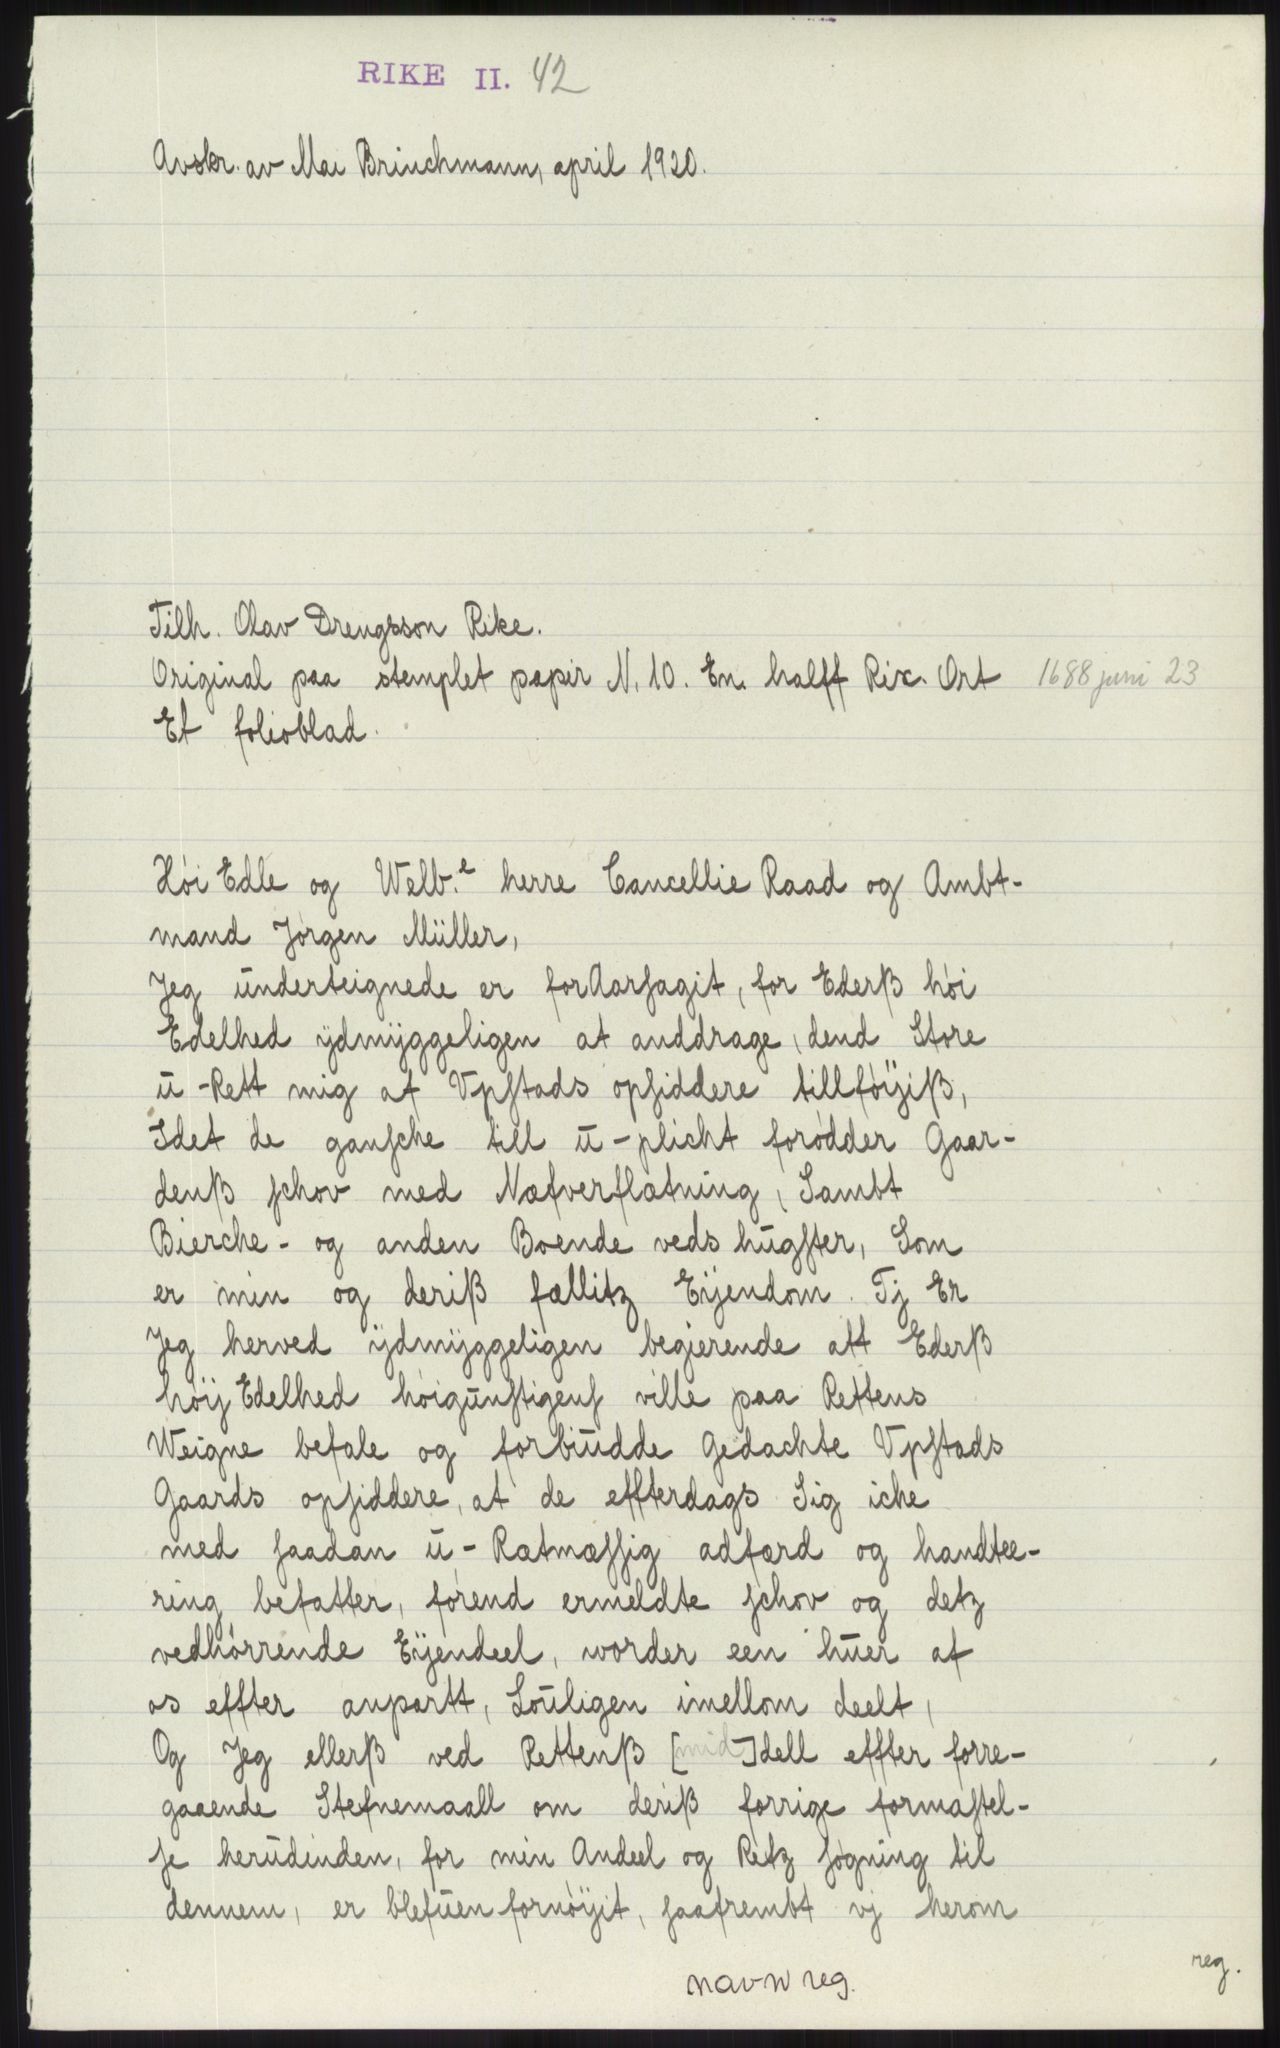 RIKE II. 42
Avskr. av Mai Brinchmann, april 1920.
Tilh. Olav Drengsson Rike.
Original paa stemplet papir N. 10. En. halff Rix. Ort 1688 juni 23
Et folioblad.
Høi Edle og Welb.e herre Cancellie Raad og Ambt-
mand Jørgen Müller,
Jeg underteignede er forAarsagit, for Ederß høi
Edelhed ÿdmÿggeligen at anddrage, dend Store
u-Rett mig af Vpstads opsiddere tillføÿiß,
Idet de gansche till u-plicht forødder Gaar-
denß schov med Næfverflætning, Sambt
Bierche- og anden Boende veds hugster, Som
er min og deriß fællitz Eÿendom. Tj Er
Jeg herved ÿdmÿggeligen begierende att Ederß
høij Edelhed høigunstigens ville paa Rettens
Weigne befale og forbiudde Gedachte Vpstads
Gaards opsiddere, at de effterdags Sig iche
med saadan u-Rætmæssig adfærd og handtee-
ring befatter, førend ermeldte schov og detz
vedhørrende Eÿendeel, worder een huer af
os effter anpartt, Louligen imellom deelt,
Og Jeg ellerß ved Rettenß [mid]dell effter forre-
gaaende Stefnemaall om deriß forrige formastel-
se herudinden, for min Andeel og Retz søgning til
dennem, er blefuen fornøÿit, saafrembt vj herom
navn reg.
reg.